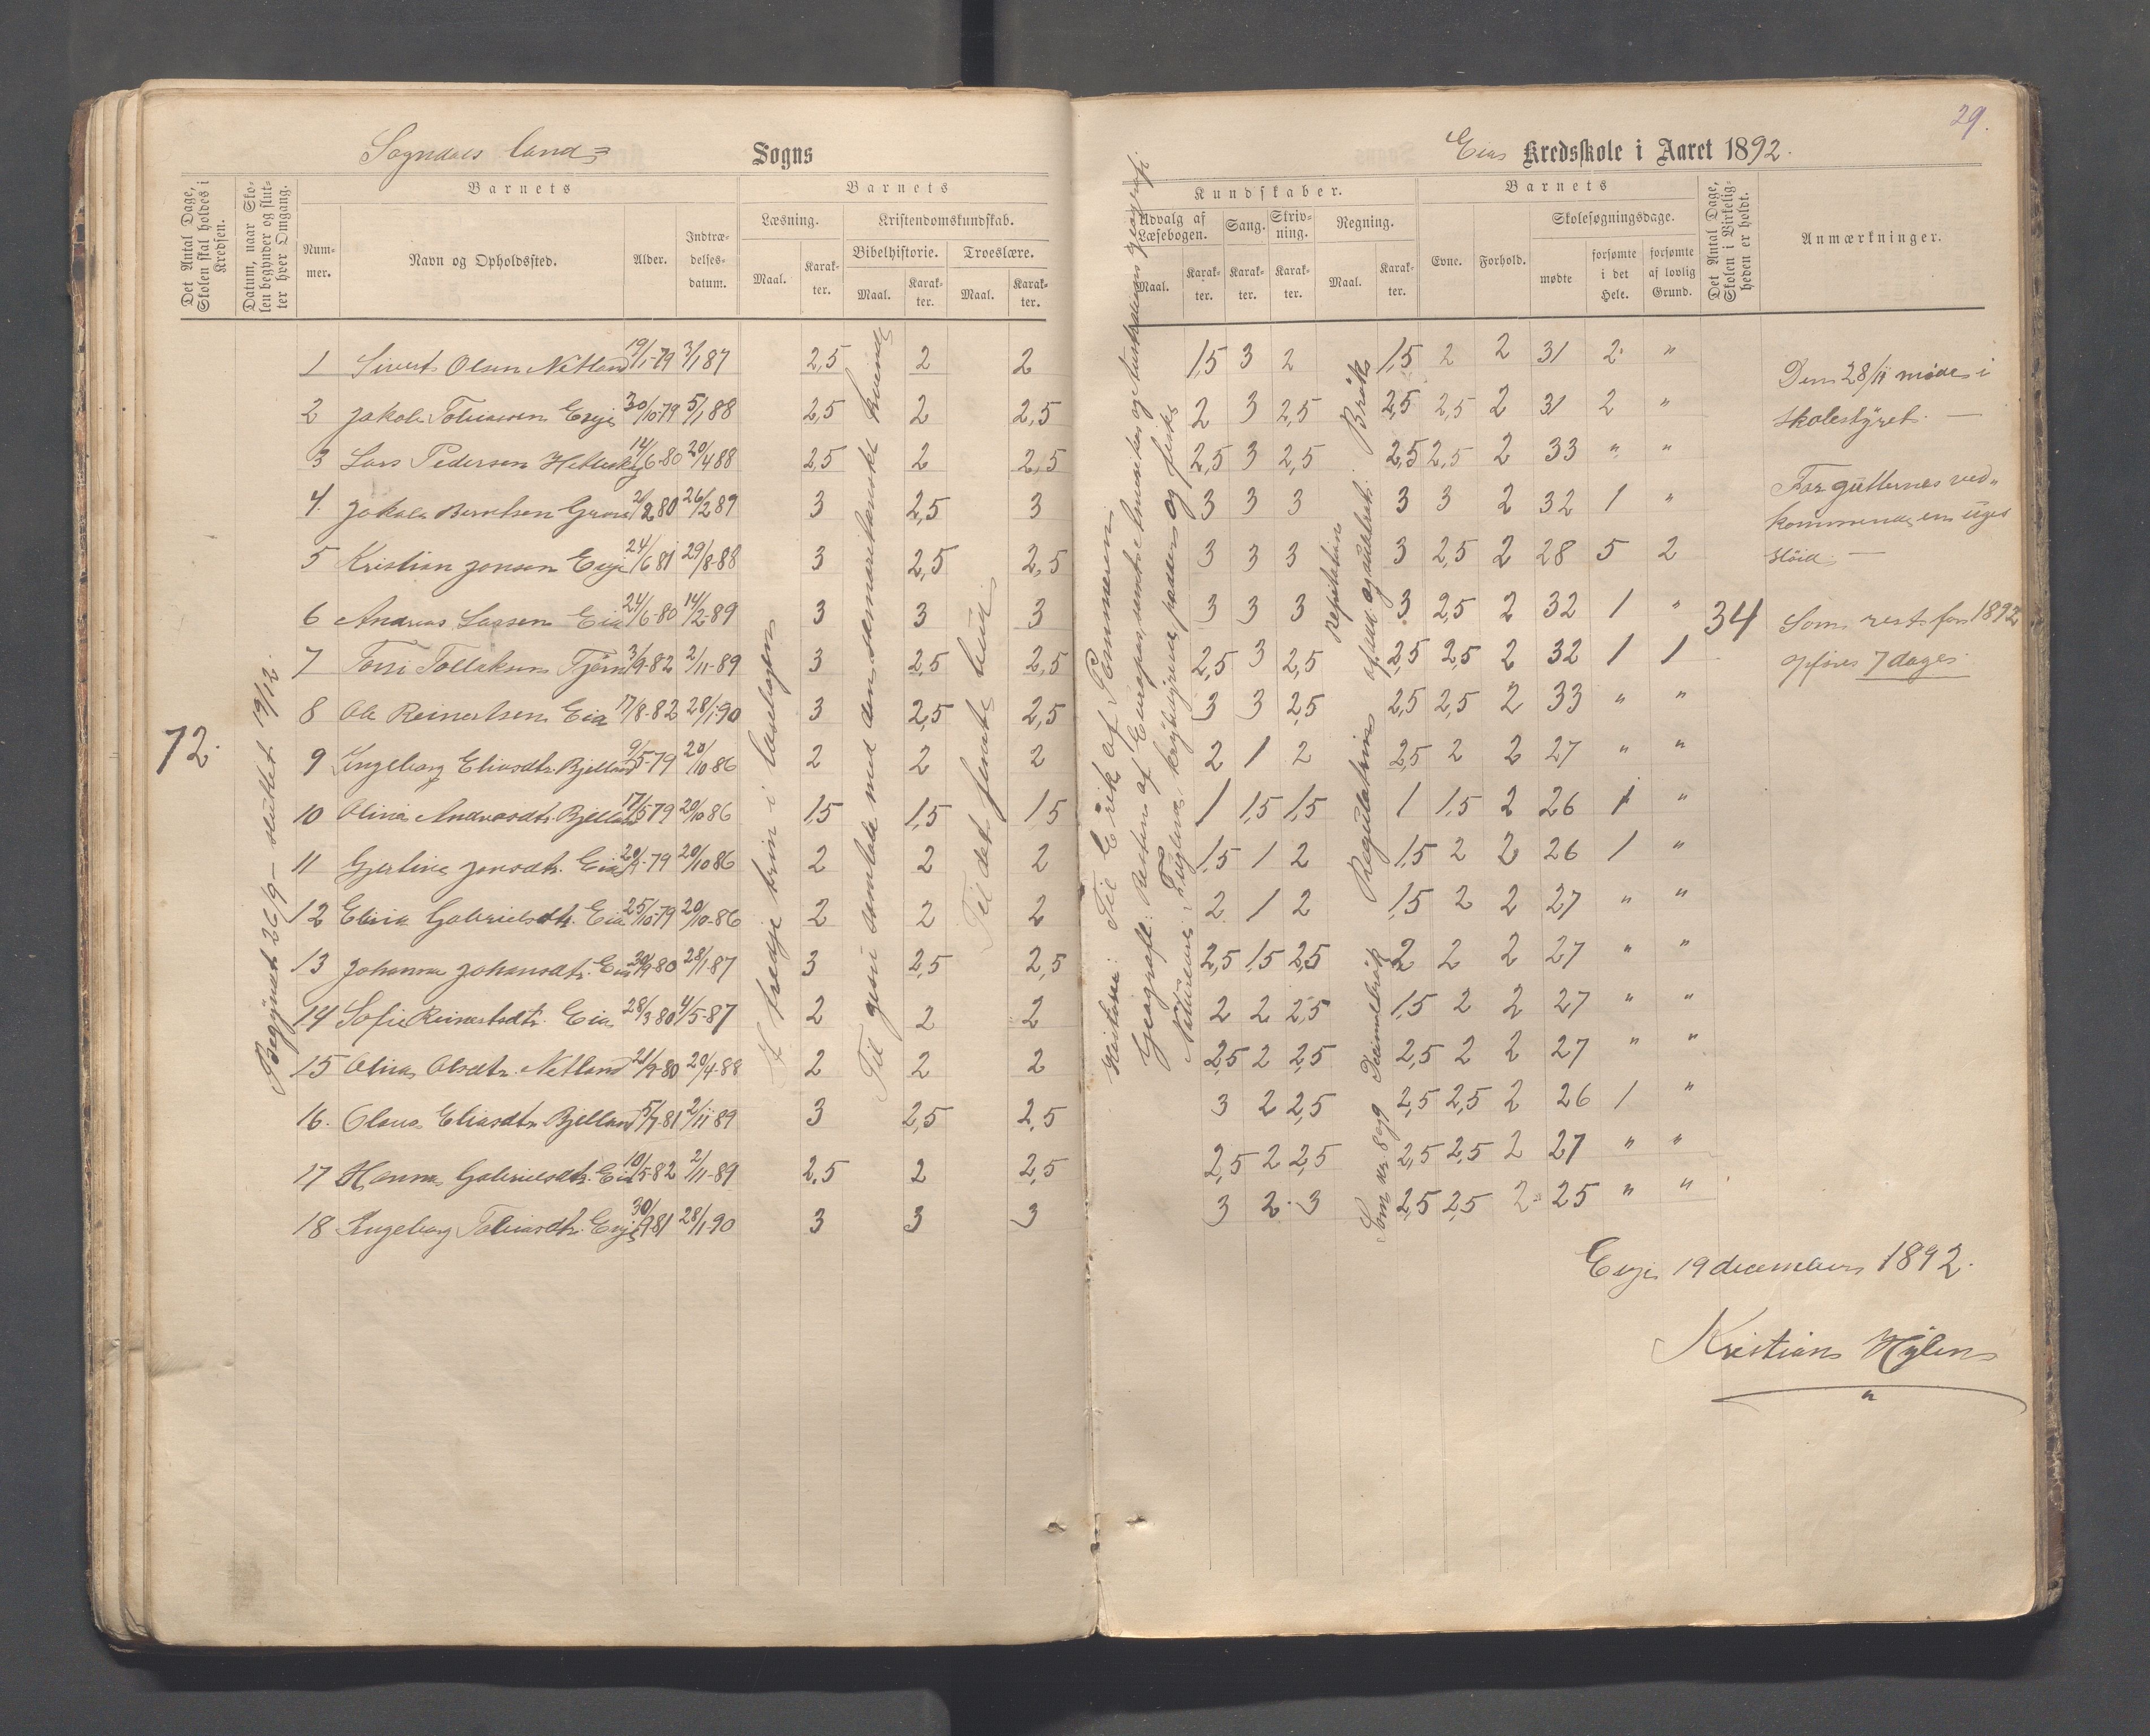 Sogndals land= Sogns
Det Antal Dage, Skolen skal holdes i Kredsen.
Datum, naar Skolen begynder og slutter hver Omgang.
Barnets
Nummer.
Navn og Opholdssted.
Alder.
Indtrædelsesdatum.
Barnets
Læsning.
Kristendomskundskab.
Bibelhistorie.
Troeslære.
Maal. Karakter. Maal. Karakter. Maal. Karakter.
72.
Begyndt 26/9 – sluttet 19/12.
I tredje trin i læsebogen
Til gesu samtale med den samaritanske kvinde
Til det femte bud
1 Sivert Olsen Netland 19/1-79 3/1 87 2,5 2 2
2 Jakob Tobiassen Eeyje 30/10-79 5/1 88 2,5 2 2,5
3 Lars Pedersen 14/6-80 20/4 88 2,5 2 2,5
4. Jakob Berntsen 2/2 80 26/2 89 3 2,5 3
5 Kristian Jonsen 24/6 81 29/8-88 3 2,5 2,5
6 Andreas Larsen Eia 24/6-80 14/2-89 3 3 3
7 Tollaksen 3/9-82 2/11-89 3 2,5 2,5
8 Ole Reinertsen Eia 17/8-82 28/1-90 3 2,5 2,5
9 Ingeborg Eliasdtr. Bjelland 9/5-79 20/10-86 2 2 2
10 Olina Andreasdtr. Bjelland 17/5 79 20/10 86 1,5 1,5 1,5
11 Gjertine Jonsdtr. Eia 79 20/10 86 2 2 2
12 Elina Gabrielsdtr. Eia 25/10-79 20/10-86 2 2 2
13 Johanna Johansdtr. Eia 30/9-80 28/1-87 3 2,5 2,5
14 Sofie Reinertsdtr. Eia 28/3 80 4/5-87 2 2 2
15 Olina Olsdtr. Netland 21/9-80 20/4-88 2 2 2
16. Olava Eliasdtr. Bjelland 5/7-81 2/11-89 3 2,5 2,5
17 Hanna Gabrielsdtr. Eia 10/5-82 2/11-89 2,5 2 2,5
18 Ingeborg Tobiasdtr. 30/9 81 28/1-90 3 3 3
29.
Eia Kredsskole i Aaret 1892.
Kundskaber.
Udvalg af Læsebogen.
Sang.
Skrivning.
Regning.
Maal. Karakter. Karakter. Karakter. Maal. Karakter.
Barnets
Evne.
Forhold.
Skolesøgningsdage.
mødte
forsømte i det Hele.
forsømte af lovlig Grund.
Det Antal Dage, Skolen i Virkeligheden er holdt.
Anmærkninger.
Historie: Til Erik af Pommern
Geografi: Resten af Europa, samt
Naturen: Fuglene, krybdyrene, padder og fiske
Repetition
Brøk
Regulatrin
Som nr 8 og Decimalbrøk
1,5 3 2 1,5 2 2 31 2 "
2 3 2,5 2,5 2,5 2 31 2 "
2,5 3 2,5 2,5 2,5 2 33 " "
3 3 3 3 3 2 32 1 "
3 3 3 3 2,5 2 28 5 2
3 3 3 3 2,5 2 32 1 "
2,5 3 2,5 2,5 2,5 2 32 1 1
3 3 2,5 2,5 2,5 2 33 " "
2 1 2 2,5 2 2 27 " "
1 1,5 1,5 1 1,5 2 26 1 "
1,5 1 2 1,5 2 2 26 1 "
2 1 2 1,5 2 2 27 " "
2,5 1,5 2,5 2 2 2 27 " "
2 2 2,5 1,5 2 2 27 " "
2,5 2 2,5 2,5 2 2 27 " "
3 2 2,5 2,5 2,5 2 26 1 "
2,5 2 2,5 2,5 2,5 2 27 " "
3 2 3 2,5 2,5 2 25 " "
34
Den 28/11 møde i
skolestyret. —
For gutternes ved„
kommende en uges
sløid. —
Som rest for 1892
opføres 7 dage.
Eeyje 19 december 1892.
Kristian Hylen